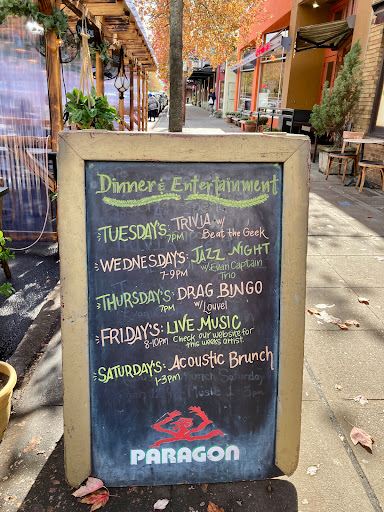 Dinner & Entertainment
TUESDAY'S: TRIVIA w/
7PM Beat the Geek
WEDNESDAYS: JAZZ NIGHT
7-9PM w/ Evan Captain
Trio
THURSDAY'S: DRAG BINGO
7pm w/ Louvel
FRIDAY'S: LIVE MUSIC
8-10PM Check our website for
this weeks artist
SATURDAY'S: Acoustic Brunch
1-3PM
PARAGON